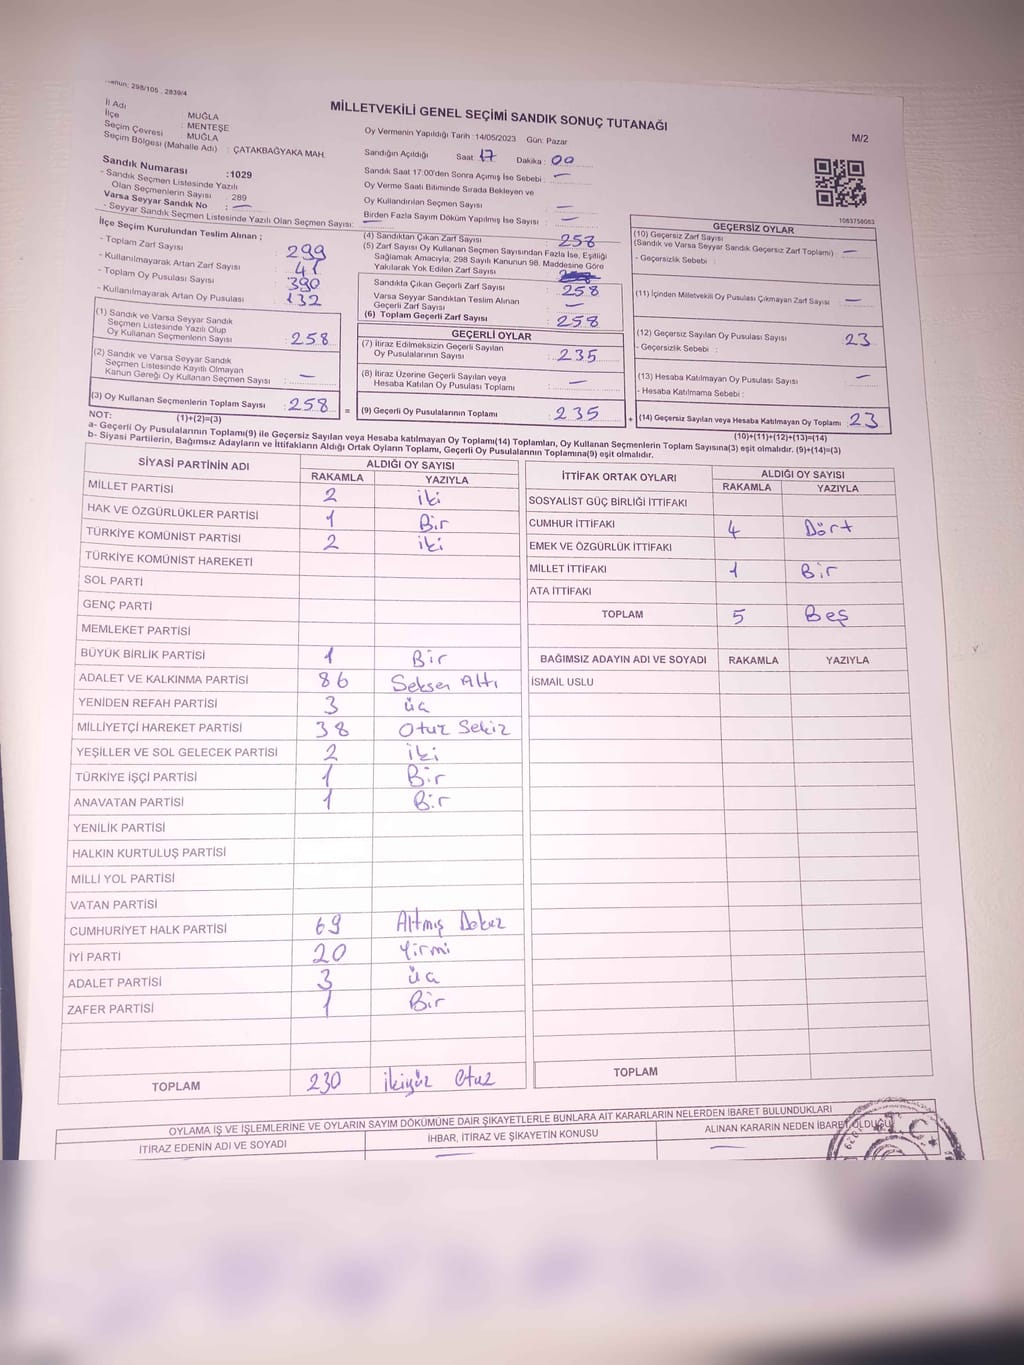 298/105 , 2839/4
MİLLETVEKİLİ GENEL SEÇİMİ SANDIK SONUÇ TUTANAĞI
M/2
İl Adı : MUĞLA
İlçe : MENTEŞE
Seçim Çevresi : MUĞLA
Seçim Bölgesi (Mahalle Adı) : ÇATAKBAĞYAKA MAH.
Sandık Numarası :1029
- Sandık Seçmen Listesinde Yazılı
Olan Seçmenlerin Sayısı : 289
Varsa Seyyar Sandık No : —
- Seyyar Sandık Seçmen Listesinde Yazılı Olan Seçmen Sayısı: —
Oy Vermenin Yapıldığı Tarih :14/05/2023 Gün: Pazar
Sandığın Açıldığı Saat: 17 Dakika : 00
Sandık Saat 17:00'den Sonra Açımış İse Sebebi : —
Oy Verme Saati Bitiminde Sırada Bekleyen ve
Oy Kullandırılan Seçmen Sayısı : —
Birden Fazla Sayım Döküm Yapılmış İse Sayısı : —
1083758063
İlçe Seçim Kurulundan Teslim Alınan ;
- Toplam Zarf Sayısı : 299
- Kullanılmayarak Artan Zarf Sayısı : 41
- Toplam Oy Pusulası Sayısı : 390
- Kullanılmayarak Artan Oy Pusulası : 132
(1) Sandık ve Varsa Seyyar Sandık
Seçmen Listesinde Yazılı Olup
Oy Kullanan Seçmenlerin Sayısı : 258
(2) Sandık ve Varsa Seyyar Sandık
Seçmen Listesinde Kayıtlı Olmayan
Kanun Gereği Oy Kullanan Seçmen Sayısı : —
(3) Oy Kullanan Seçmenlerin Toplam Sayısı : 258
(1)+(2)=(3)
(4) Sandıktan Çıkan Zarf Sayısı : 258
(5) Zarf Sayısı Oy Kullanan Seçmen Sayısından Fazla İse, Eşitliği
Sağlamak Amacıyla, 298 Sayılı Kanunun 98. Maddesine Göre
Yakılarak Yok Edilen Zarf Sayısı
Sandıkta Çıkan Geçerli Zarf Sayısı : 258
Varsa Seyyar Sandıktan Teslim Alınan
Geçerli Zarf Sayısı : —
(6) Toplam Geçerli Zarf Sayısı : 258
GEÇERLİ OYLAR
(7) İtiraz Edilmeksizin Geçerli Sayılan
Oy Pusulalarının Sayısı : 235
(8) İtiraz Üzerine Geçerli Sayılan veya
Hesaba Katılan Oy Pusulası Toplamı : —
= (9) Geçerli Oy Pusulalarının Toplamı : 235
GEÇERSİZ OYLAR
(10) Geçersiz Zarf Sayısı
(Sandık ve Varsa Seyyar Sandık Geçersiz Zarf Toplamı) : —
- Geçersizlik Sebebi :
(11) İçinden Milletvekili Oy Pusulası Çıkmayan Zarf Sayısı : —
(12) Geçersiz Sayılan Oy Pusulası Sayısı : 23
- Geçersizlik Sebebi :
(13) Hesaba Katılmayan Oy Pusulası Sayısı : —
- Hesaba Katılmama Sebebi :
+ (14) Geçersiz Sayılan veya Hesaba Katılmayan Oy Toplamı : 23
(10)+(11)+(12)+(13)=(14)
NOT:
a- Geçerli Oy Pusulalarının Toplamı(9) ile Geçersiz Sayılan veya Hesaba katılmayan Oy Toplamı(14) Toplamları, Oy Kullanan Seçmenlerin Toplam Sayısına(3) eşit olmalıdır. (9)+(14)=(3)
b- Siyasi Partilerin, Bağımsız Adayların ve İttifakların Aldığı Ortak Oyların Toplamı, Geçerli Oy Pusulalarının Toplamına(9) eşit olmalıdır.
SİYASİ PARTİNİN ADI ALDIĞI OY SAYISI
RAKAMLA YAZIYLA
MİLLET PARTİSİ 2 iki
HAK VE ÖZGÜRLÜKLER PARTİSİ 1 Bir
TÜRKİYE KOMÜNİST PARTİSİ 2 iki
TÜRKİYE KOMÜNİST HAREKETİ
SOL PARTİ
GENÇ PARTİ
MEMLEKET PARTİSİ
BÜYÜK BİRLİK PARTİSİ 1 Bir
ADALET VE KALKINMA PARTİSİ 86 Seksen Altı
YENİDEN REFAH PARTİSİ 3 üç
MİLLİYETÇİ HAREKET PARTİSİ 38 Otuz Sekiz
YEŞİLLER VE SOL GELECEK PARTİSİ 2 iki
TÜRKİYE İŞÇİ PARTİSİ 1 Bir
ANAVATAN PARTİSİ 1 Bir
YENİLİK PARTİSİ
HALKIN KURTULUŞ PARTİSİ
MİLLİ YOL PARTİSİ
VATAN PARTİSİ
CUMHURİYET HALK PARTİSİ 69 Altmış Dokuz
İYİ PARTİ 20 Yirmi
ADALET PARTİSİ 3 üç
ZAFER PARTİSİ 1 Bir
TOPLAM 230 ikiyüz Otuz
İTTİFAK ORTAK OYLARI ALDIĞI OY SAYISI
RAKAMLA YAZIYLA
SOSYALİST GÜÇ BİRLİĞİ İTTİFAKI
CUMHUR İTTİFAKI 4 Dört
EMEK VE ÖZGÜRLÜK İTTİFAKI
MİLLET İTTİFAKI 1 Bir
ATA İTTİFAKI
TOPLAM 5 Beş
BAĞIMSIZ ADAYIN ADI VE SOYADI RAKAMLA YAZIYLA
İSMAİL USLU
TOPLAM
OYLAMA İŞ VE İŞLEMLERİNE VE OYLARIN SAYIM DÖKÜMÜNE DAİR ŞİKAYETLERLE BUNLARA AİT KARARLARIN NELERDEN İBARET BULUNDUKLARI
İTİRAZ EDENİN ADI VE SOYADI İHBAR, İTİRAZ VE ŞİKAYETİN KONUSU ALINAN KARARIN NEDEN İBARET OLDUĞU
— —
T.C.